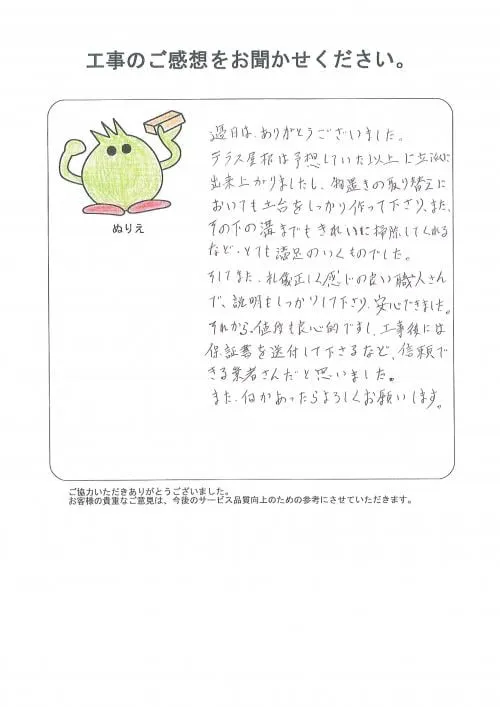 工事のご感想をお聞かせください。
ぬりえ
過日は、ありがとうございました。
テラス屋根は予想していた以上に立派に
出来上がりましたし、物置きの取り替えに
おいても土台をしっかり作って下さり、また、
その下の溝までもきれいに掃除してくれる
など、とても満足のいくものでした。
そしてまた、礼儀正しく感じの良い職人さん
で、説明もしっかりして下さり、安心できました。
それから、値段も良心的ですし、工事後には
保証書を送付して下さるなど、信頼で
きる業者さんだと思いました。
また、何かあったらよろしくお願いします。
ご協力いただきありがとうございました。
お客様の貴重なご意見は、今後のサービス品質向上のための参考にさせていただきます。